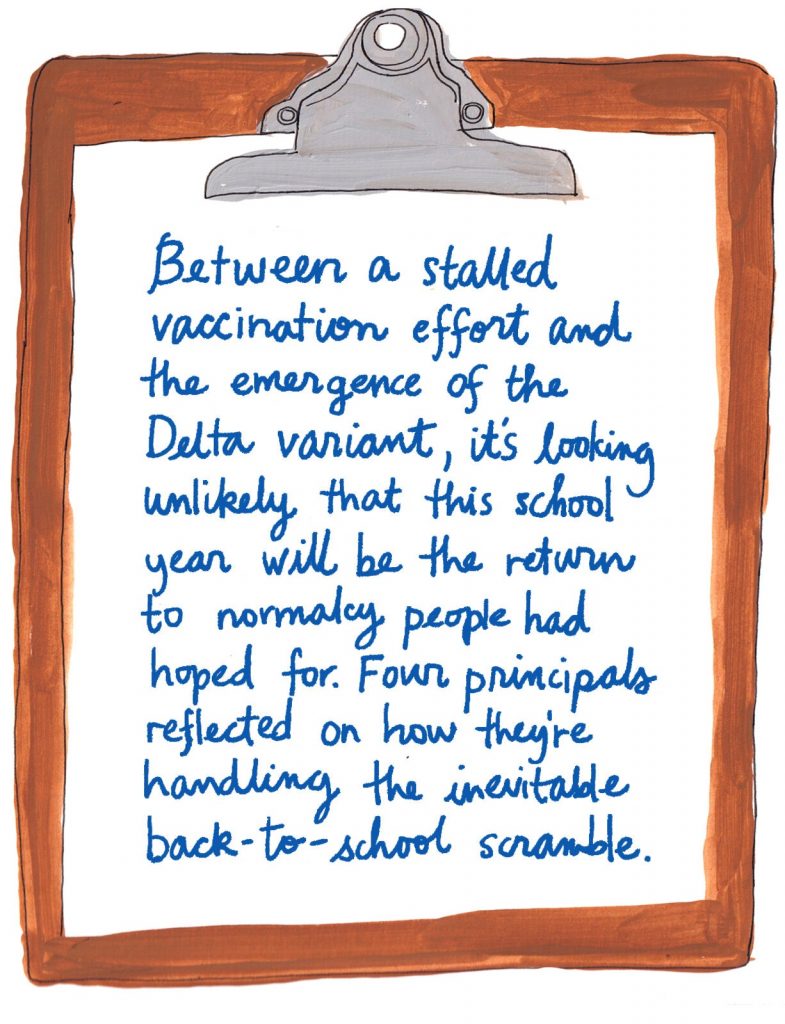 Between a stalled
vaccination effort and
the emergence of the
Delta variant, it's looking
unlikely that this school
year will be the return
to normalcy people had
hoped for. Four principals
reflected on how they're
handling the inevitable
back-to-school scramble.